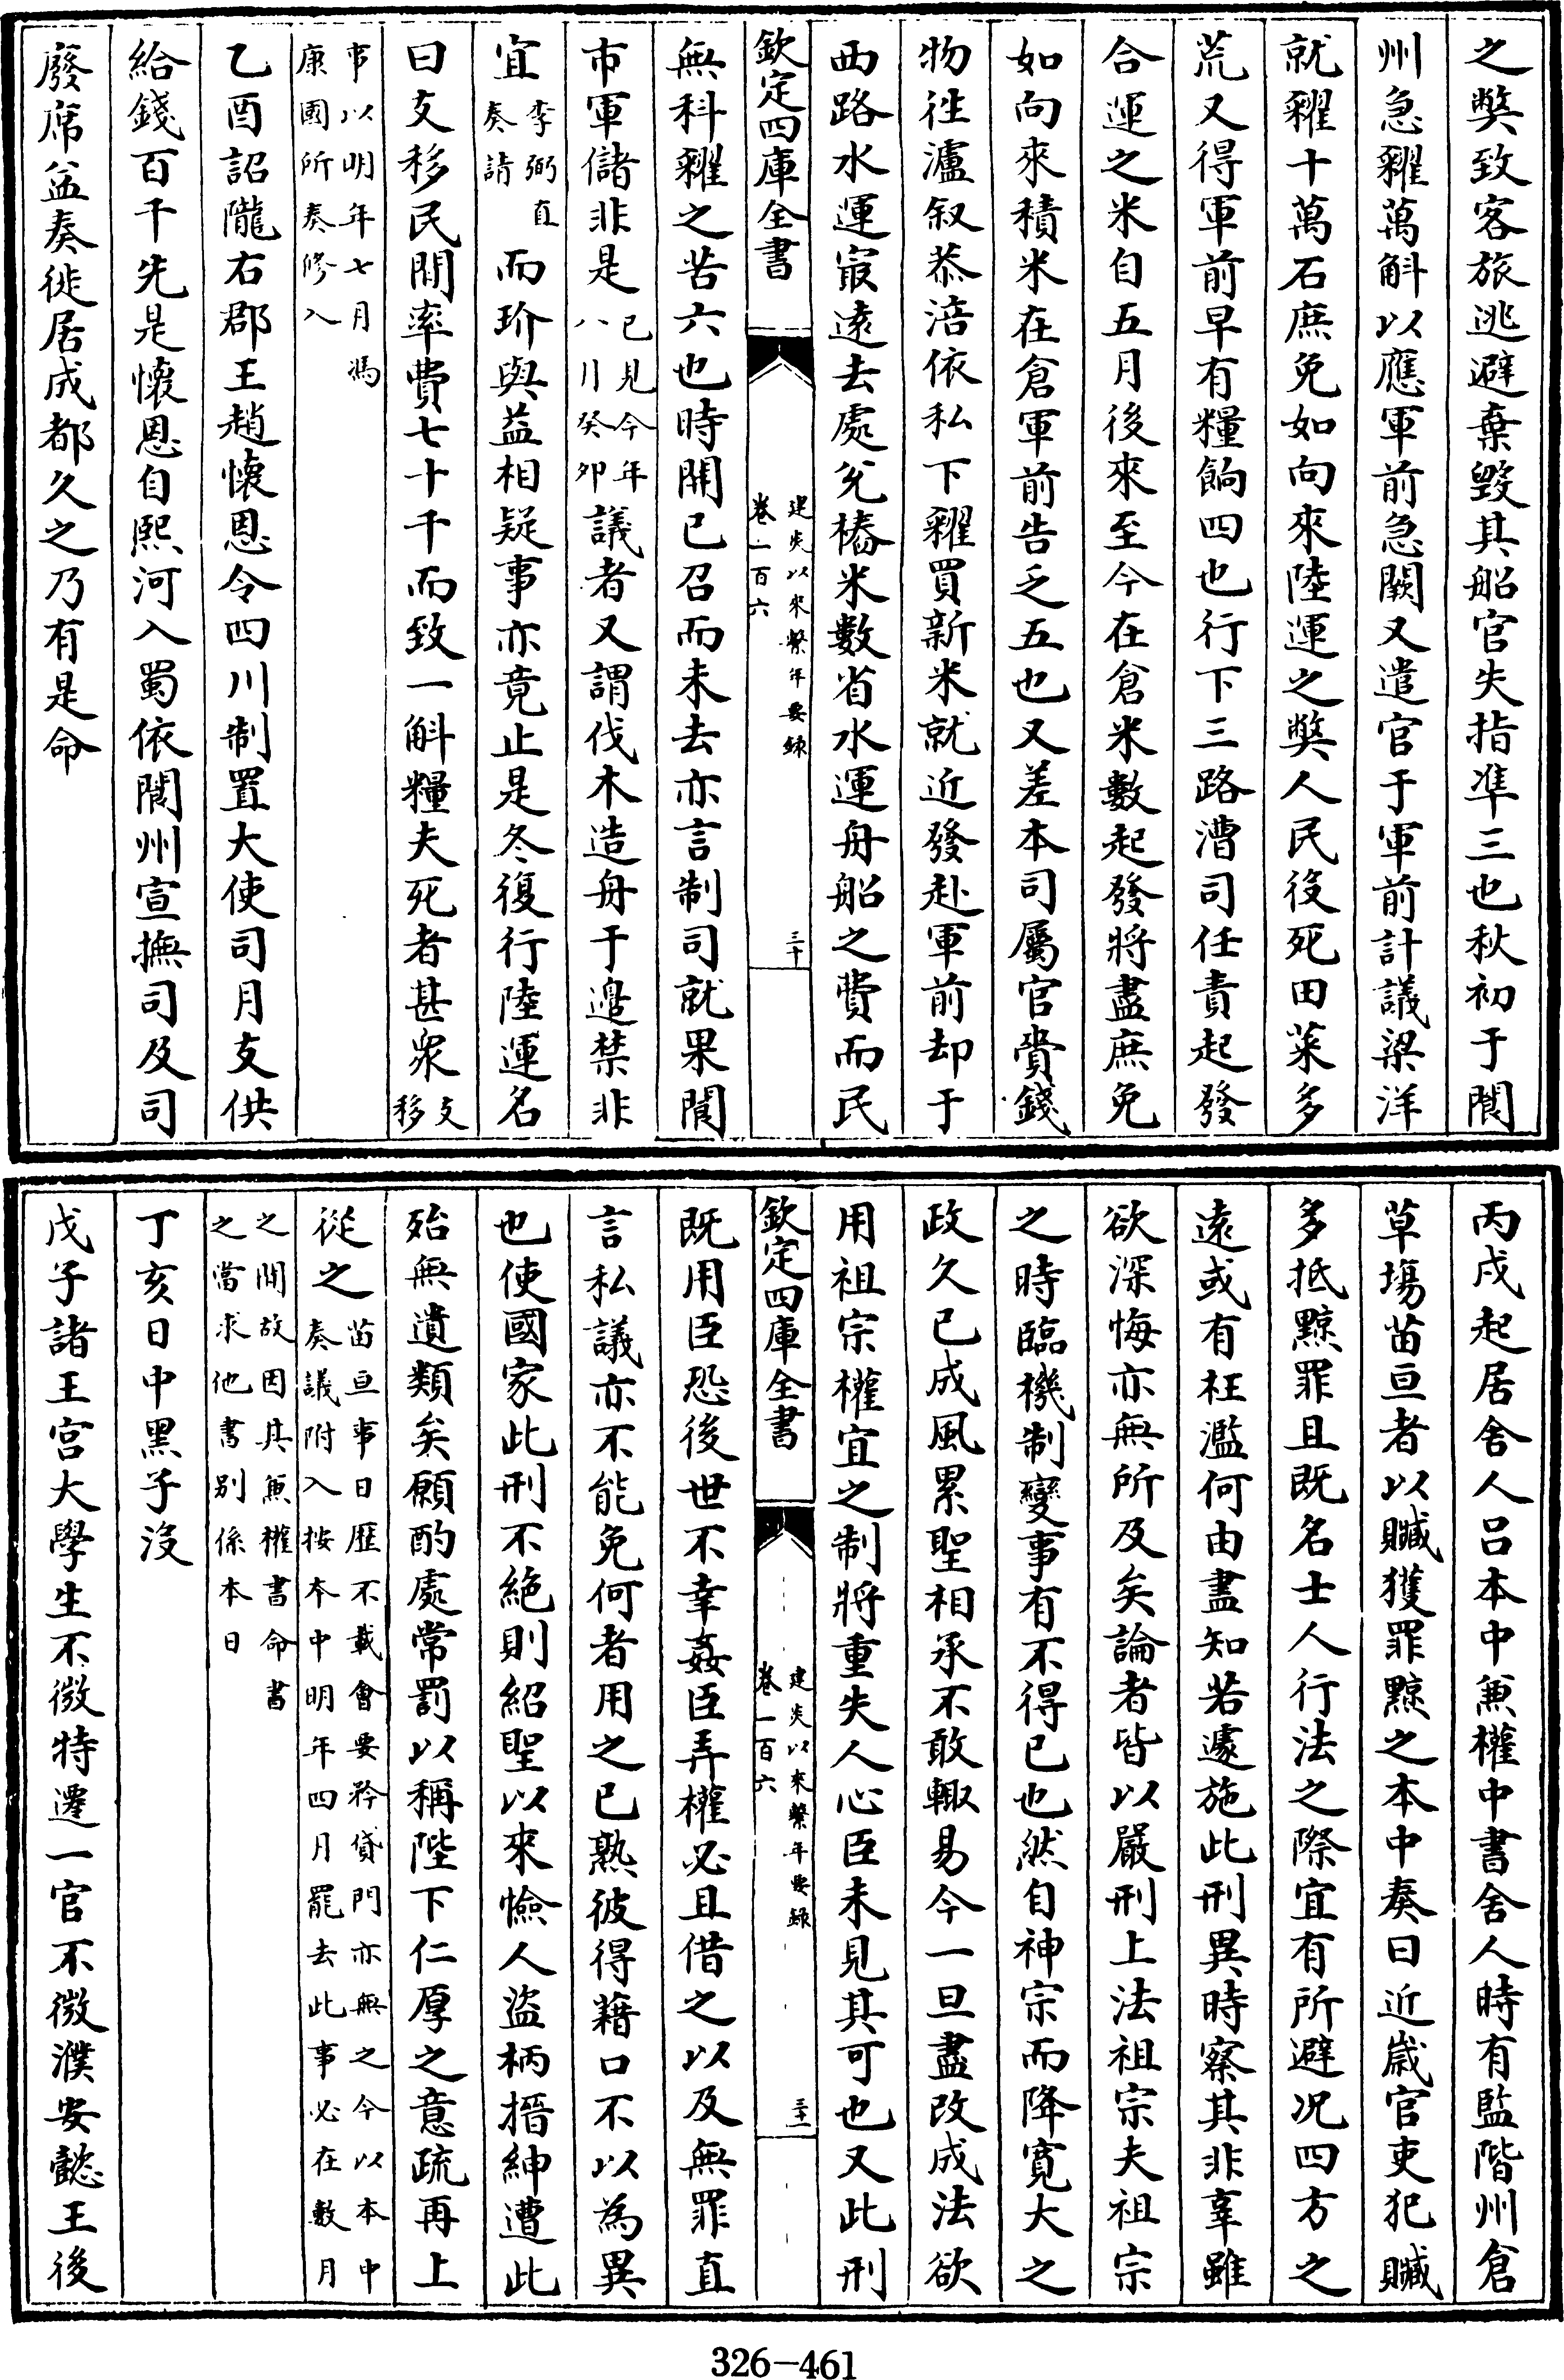 之弊致客旅逃避棄毀其船官失指凖三也秋初于閬
州急糴萬斛以應軍前急闕又遣官于軍前計議梁洋
就糴十萬石庶免如向來陸運之弊人民役死田萊多
荒又得軍前早有糧餉四也行下三路漕司任責起發
合運之米自五月後來至今在倉米數起發將盡庶免
如向來積米在倉軍前告乏五也又差本司屬官賫錢
物往瀘叙恭涪依私下糴買新米就近發赴軍前却于
西路水運㝡逺去處兊樁米數省水運舟船之費而民
欽定四庫全書
建炎以來繫年要録
卷一百六
三十
無科糴之苦六也時開已召而未去亦言制司就果閬
市軍儲非是
已見今年
八月癸卯
議者又謂伐木造舟于邉禁非
宜
李弼直
奏請
而玠與益相疑事亦竟止是冬復行陸運名
曰支移民間率費七十千而致一斛糧夫死者甚衆
支
移
事以明年七月馮
康國所奏修入
乙酉詔隴右郡王趙懷恩令四川制置大使司月支供
給錢百千先是懷恩自熙河入蜀依閬州宣撫司及司
廢席益奏徙居成都久之乃有是命
丙戌起居舍人吕本中兼權中書舍人時有監階州倉
草塲苗亘者以贓獲罪黥之本中奏曰近嵗官吏犯贓
多抵黥罪且既名士人行法之際宜有所避况四方之
逺或有枉濫何由盡知若遽施此刑異時察其非辜雖
欲深悔亦無所及矣論者皆以嚴刑上法祖宗夫祖宗
之時臨機制變事有不得已也然自神宗而降寛大之
政久已成風累聖相承不敢輙易今一旦盡改成法欲
用祖宗權宜之制將重失人心臣未見其可也又此刑
欽定四庫全書
建炎以來繫年要録
卷一百六
三十一
既用臣恐後世不幸姦臣弄權必且借之以及無罪直
言私議亦不能免何者用之已熟彼得藉口不以為異
也使國家此刑不絶則紹聖以來憸人盜柄搢紳遭此
殆無遺類矣願酌處常罰以稱陛下仁厚之意疏再上
從之
苗亘事日厯不載會要矜貸門亦無之今以本中
奏議附入按本中明年四月罷去此事必在數月
之間故因其兼權書命書
之當求他書别係本日
丁亥日中黒子沒
戊子諸王宮大學生不微特遷一官不微濮安懿王後

326-461